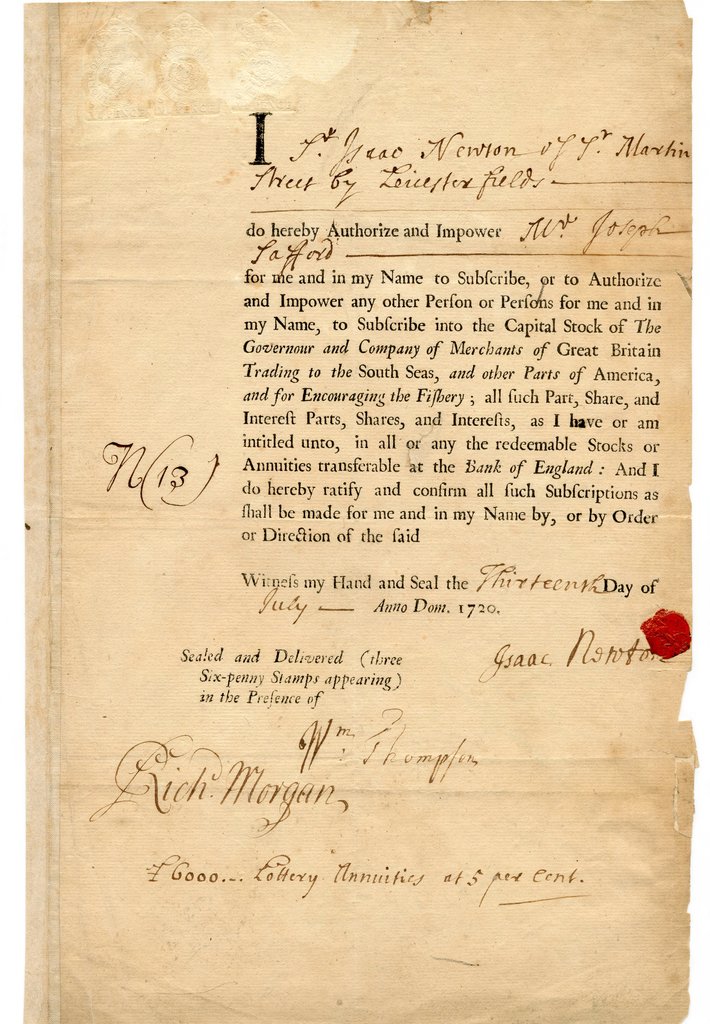 I Sr. Isaac Newton of St. Martin
Street by Leicester fields
do hereby Authorize and Impower Mr. Joseph
Safford
for me and in my Name to Subſcribe, or to Authorize
and Impower any other Perſon or Perſons for me and in
my Name, to Subſcribe into the Capital Stock of The
Governour and Company of Merchants of Great Britain
Trading to the South Seas, and other Parts of America,
and for Encouraging the Fiſhery; all ſuch Part, Share, and
Intereſt Parts, Shares, and Intereſts, as I have or am
intitled unto, in all or any the redeemable Stocks or
Annuities tranſferable at the Bank of England: And I
do hereby ratify and confirm all ſuch Subſcriptions as
ſhall be made for me and in my Name by, or by Order
or Direction of the ſaid
N(13)
Witneſs my Hand and Seal the Thirteenth Day of
July — Anno Dom. 1720.
Isaac Newton
Sealed and Delivered (three
Six-penny Stamps appearing)
in the Preſence of
Wm: Thompſon
Richd. Morgan
£6000.-. Lottery Annuities at 5 per Cent.